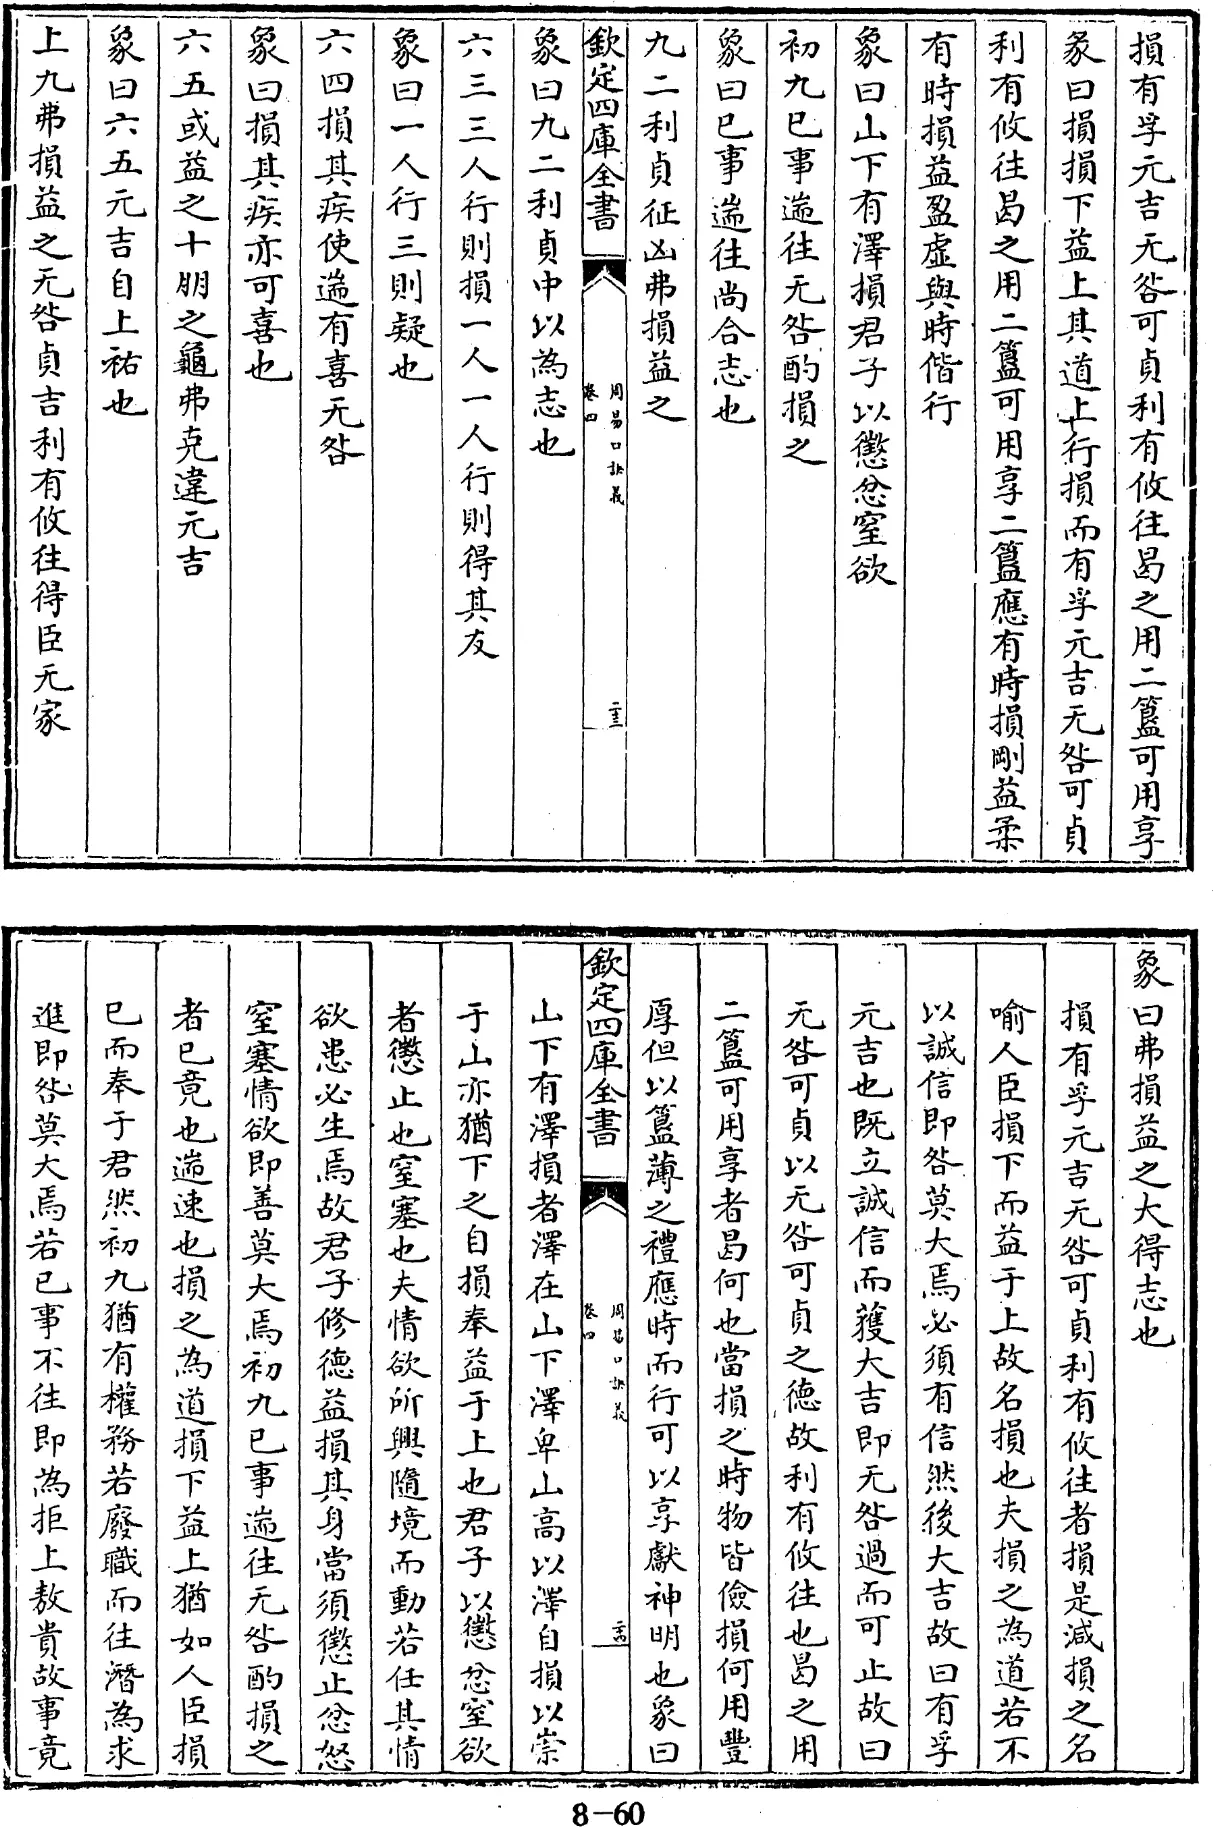 損有孚元吉无咎可貞利有攸往曷之用二簋可用享
彖曰損損下益上其道上行損而有孚元吉无咎可貞
利有攸往曷之用二簋可用享二簋應有時損剛益柔
有時損益盈虛與時偕行
象曰山下有澤損君子以懲忿窒欲
初九巳事遄往无咎酌損之
象曰巳事遄往尚合志也
九二利貞征凶弗損益之
欽定四庫全書
周易口訣義
卷四
二十三
象曰九二利貞中以為志也
六三三人行則損一人一人行則得其友
象曰一人行三則疑也
六四損其疾使遄有喜无咎
象曰損其疾亦可喜也
六五或益之十朋之龜弗克違元吉
象曰六五元吉自上祐也
上九弗損益之无咎貞吉利有攸往得臣无家
象曰弗損益之大得志也
損有孚元吉无咎可貞利有攸往者損是減損之名
喻人臣損下而益于上故名損也夫損之為道若不
以誠信即咎莫大焉必須有信然後大吉故曰有孚
元吉也既立誠信而獲大吉即无咎過而可止故曰
无咎可貞以无咎可貞之德故利有攸往也曷之用
二簋可用享者曷何也當損之時物皆儉損何用豐
厚但以簋薄之禮應時而行可以享獻神明也象曰
欽定四庫全書
周易口訣義
卷四
二十四
山下有澤損者澤在山下澤卑山高以澤自損以崇
于山亦猶下之自損奉益于上也君子以懲忿窒欲
者懲止也窒塞也夫情欲所興隨境而動若任其情
欲患必生焉故君子修德益損其身當須懲止忿怒
窒塞情欲即善莫大焉初九巳事遄往无咎酌損之
者巳竟也遄速也損之為道損下益上猶如人臣損
巳而奉于君然初九猶有權務若廢職而往潛為求
進即咎莫大焉若巳事不往即為拒上敖貴故事竟
8-60